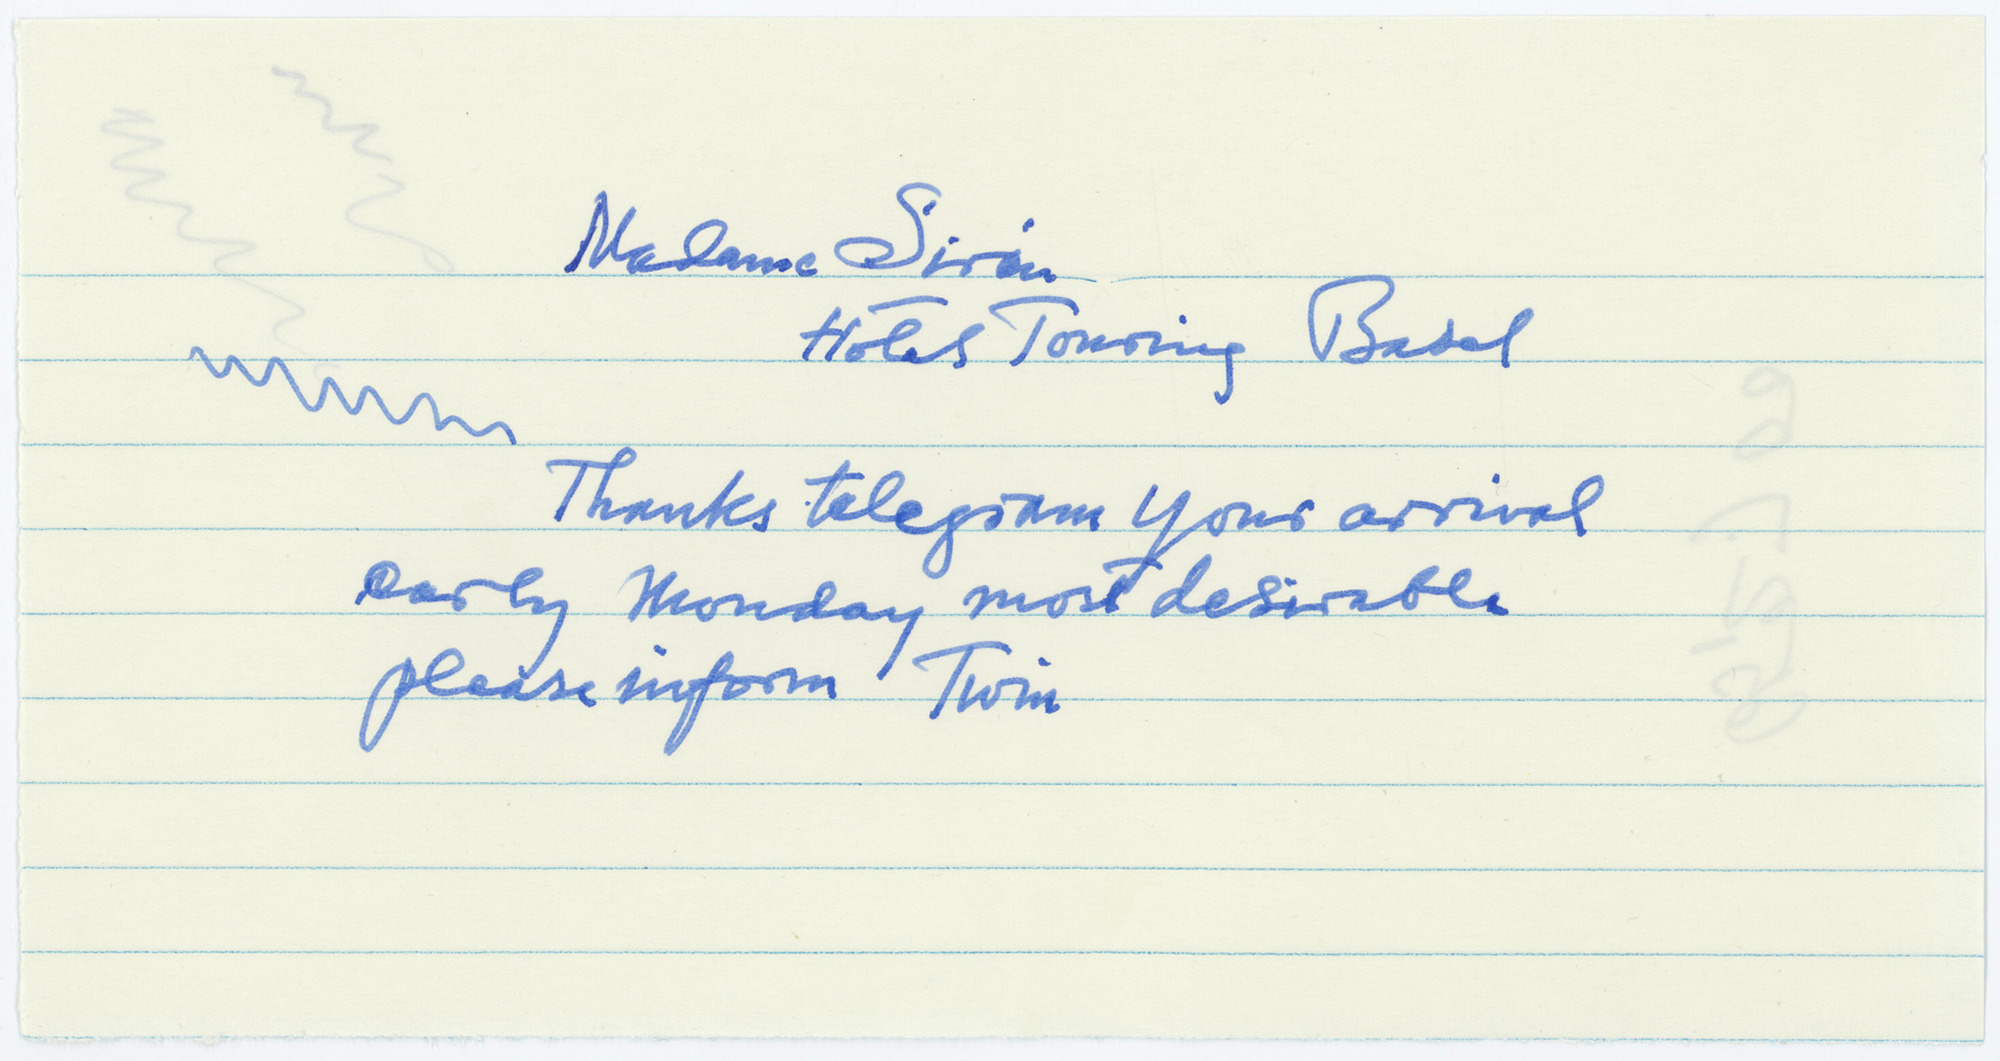 Madame Sirén
Hôtel Touring Basel
Thanks telegram your arrival
early Monday most desirable
please inform Twin